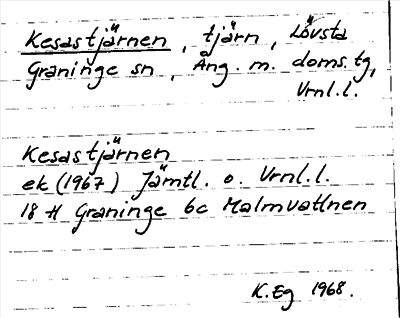 Kesastjärnen, tjärn, Lövsta
Graninge sn, Ång. m. doms.tg,
Vrnl.l.
Kesastjärnen
ek (1967) Jämtl. o. Vrnl.l.
18 H Graninge 6c Malmvattnen
K.Eg 1968.